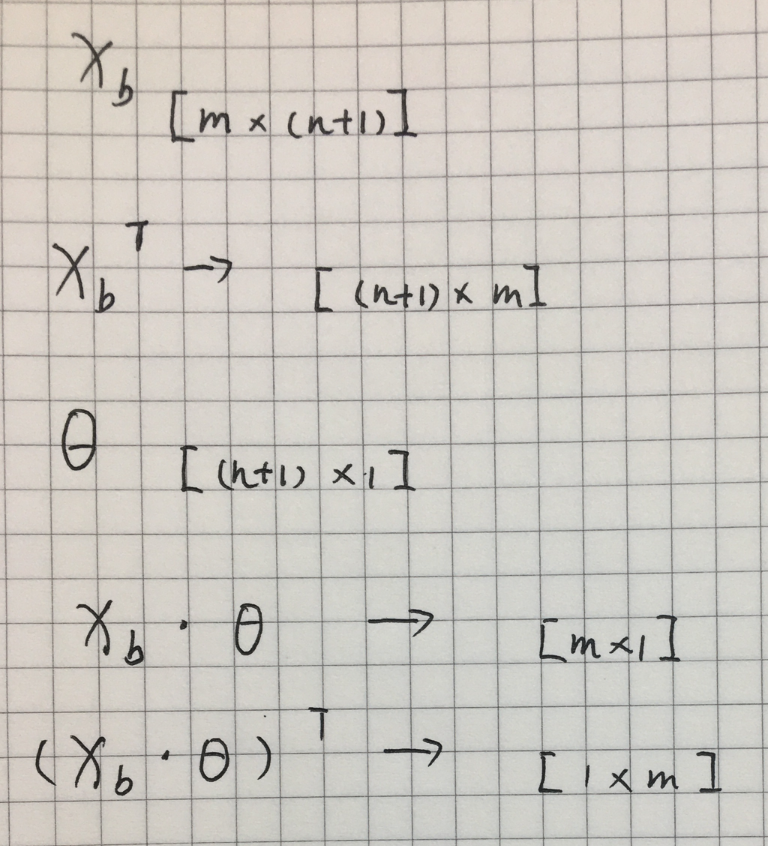 X_b [m × (n+1)]
X_b^T → [(n+1) × m]
θ [(n+1) × 1]
X_b · θ → [m × 1]
(X_b · θ)^T → [1 × m]